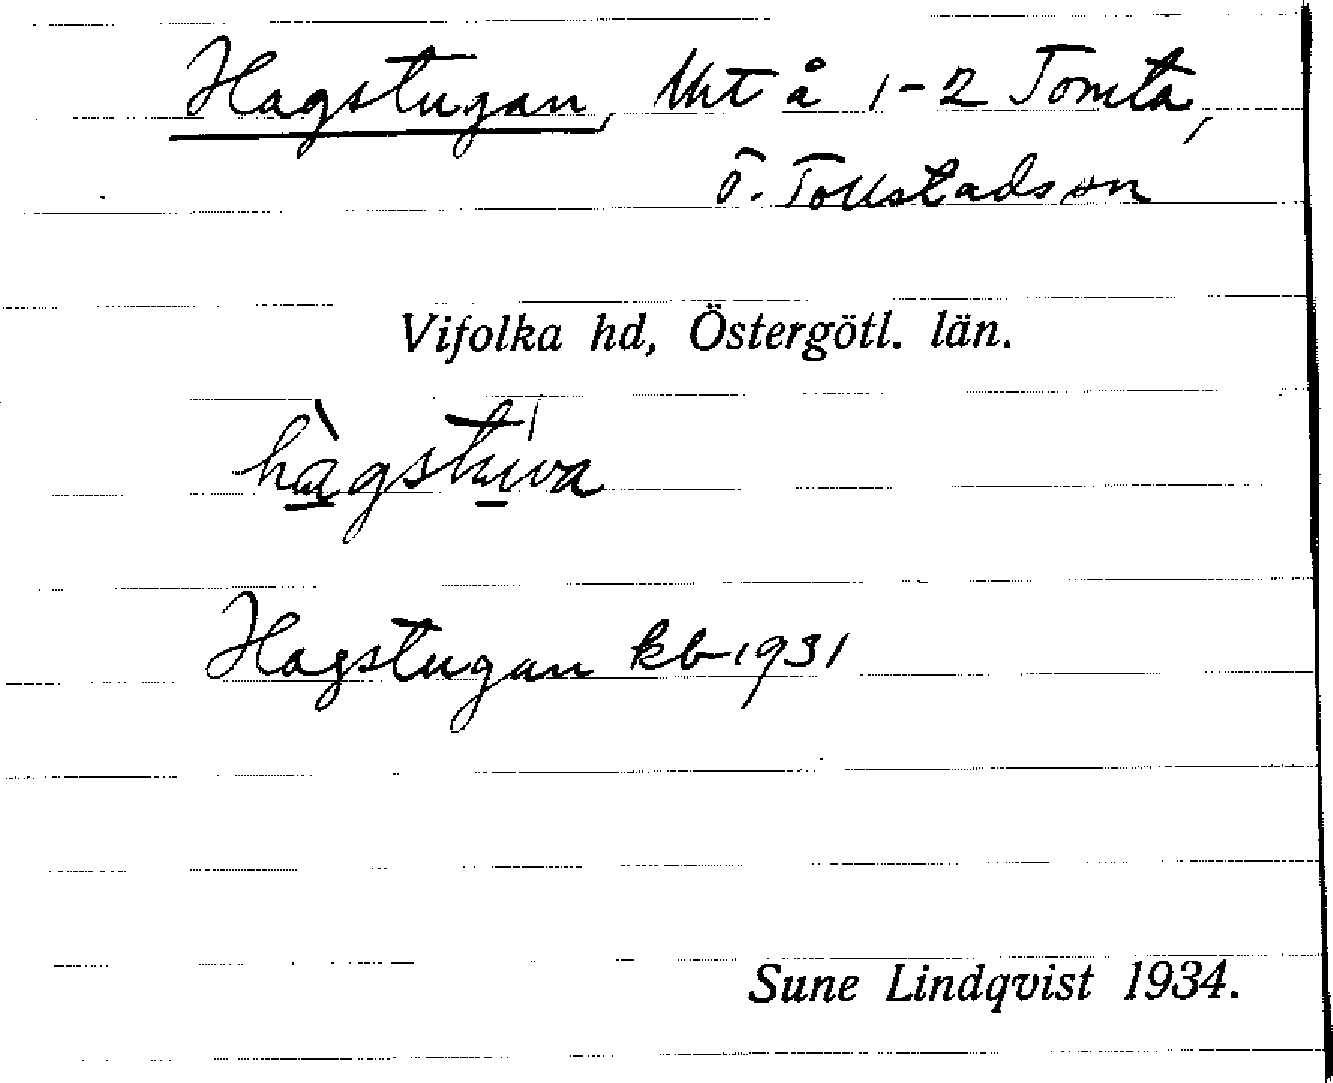 Hagstugan, lht å 1-2 Tomta,
Ö. Tollstads sn
Vifolka hd, Östergötl. län.
hàgstúva
Hagstugan kb 1931
Sune Lindqvist 1934.